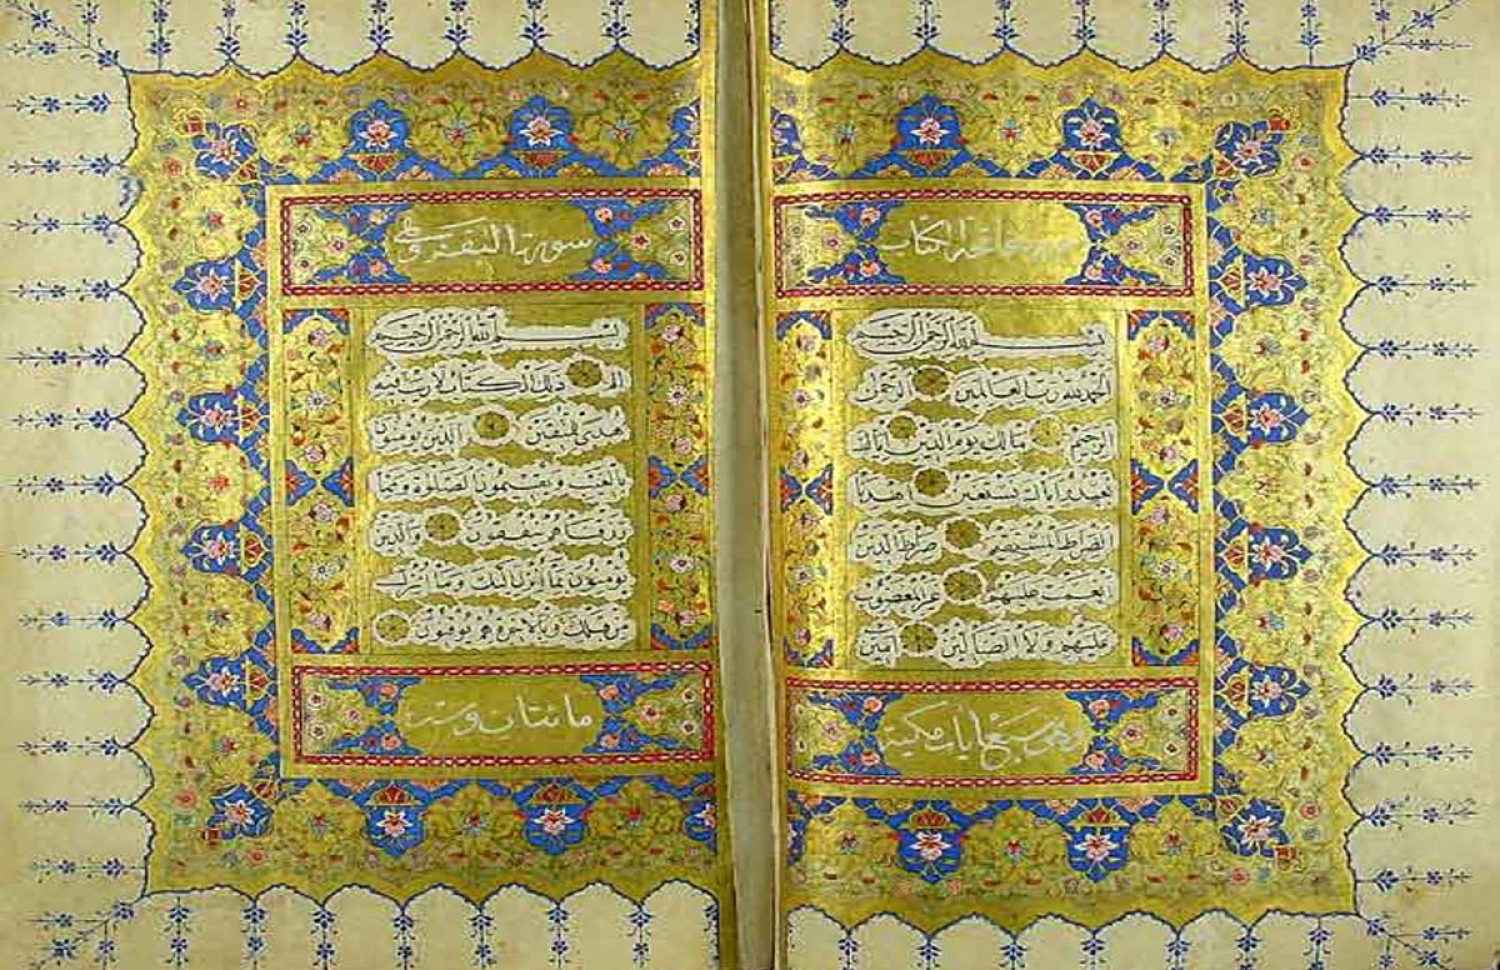 سورة فاتحة الكتاب
بسم الله الرحمن الرحيم
الحمد لله رب العالمين الرحمن
الرحيم مالك يوم الدين اياك
نعبد واياك نستعين اهدنا
الصراط المستقيم صراط الذين
انعمت عليهم غير المغضوب
عليهم ولا الضالين امين
وهى سبع ايات مكية
سورة البقرة وهى
بسم الله الرحمن الرحيم
الم ذلك الكتاب لا ريب فيه
هدى للمتقين الذين يؤمنون
بالغيب ويقيمون الصلوة ومما
رزقناهم ينفقون والذين
يؤمنون بما انزل اليك وما انزل
من قبلك وبالاخرة هم يوقنون
مائتان وست